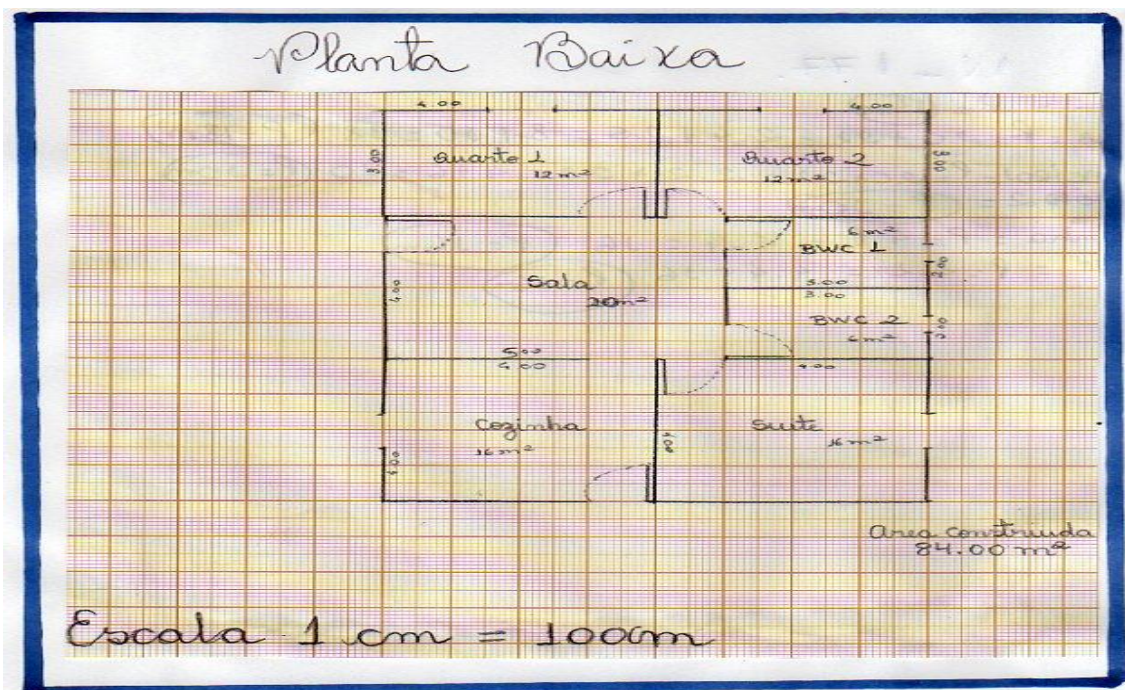 Planta Baixa
4.00
4.00
3.00
Quarto 1
12 m²
Quarto 2
12 m²
3.00
6 m²
BWC 1
2.00
4.00
Sala
20m²
3.00
3.00
BWC 2
6 m²
5.00
4.00
4.00
Cozinha
16 m²
4.00
Suite
16 m²
Area construida
84.00 m²
Escala 1 cm = 100cm